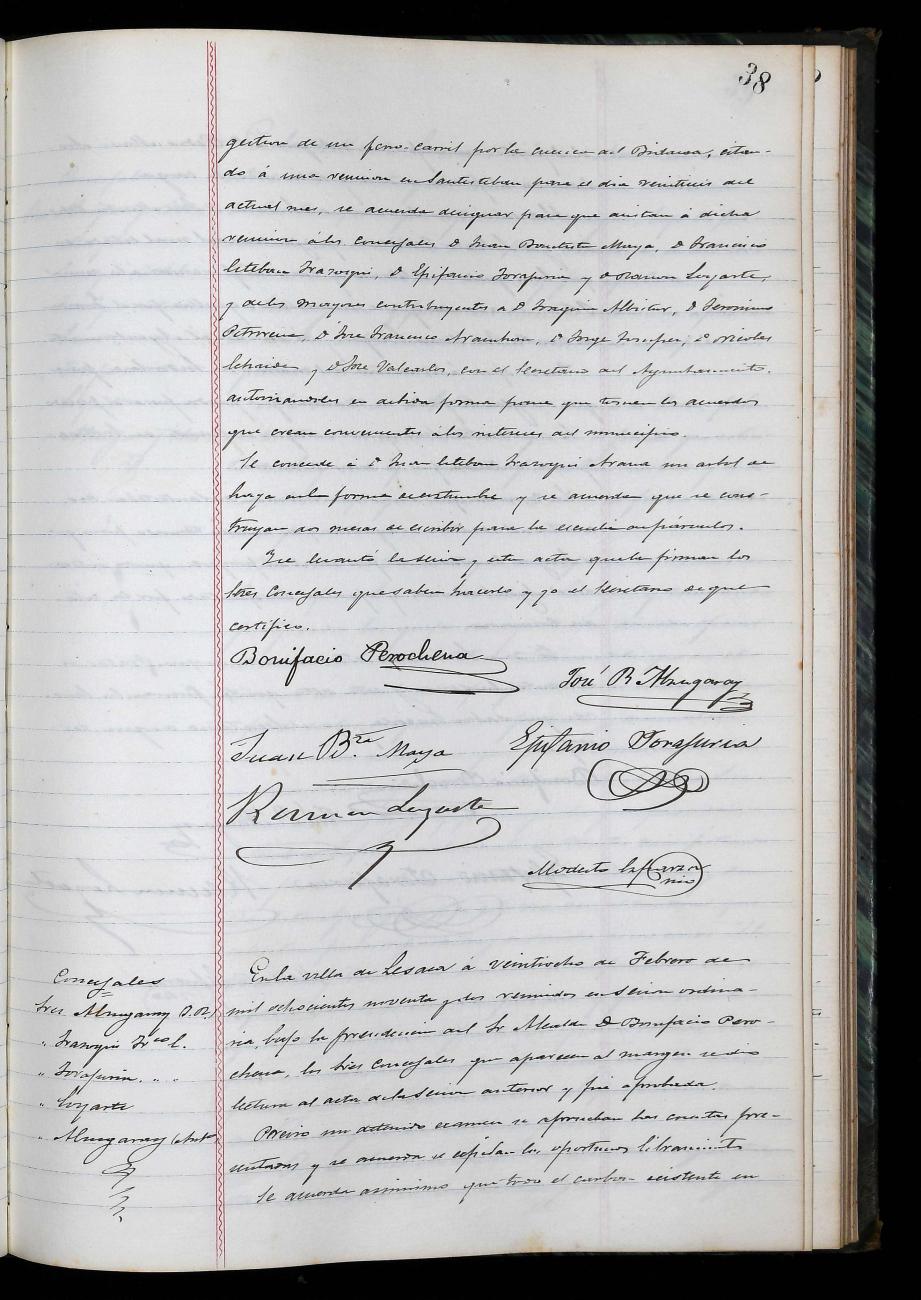 38
gestion de un ferro-carril por la cuenca del Bidasoa, citan-
do á una reunion en Santesteban para el dia veintiseis del
actual mes, se acuerda designar para que asistan á dicha
reunion á los Concejales D Juan Bautista Maya, D Francisco
Esteban Irazoqui, D Epifanio Torajuria y D Ramon Loyarte,
y de los mayores contribuyentes a D Joaquin Albistur, D Geronimo
D José Francisco D Jorge D Nicolas
y D José Valcarlos, con el Secretario del Ayuntamiento,
autorizandoles en debida forma para que tomen los acuerdos
que crean convenientes á los intereses del municipio.
Se concede á D Juan Esteban Irazoqui Arana un arbol de
haya en la forma de costumbre y se acuerda que se cons-
truyan dos mesas de escribir para la escuela de párvulos.
Y se levantó la sesion y esta acta que la firman los
Sres Concejales que saben hacerlo y yo el Secretario de que
certifico.
Bonifacio Perochena
José B Almugaray
Juan B.ta Maya
Epifanio Torajuria
Ramon Loyarte
Modesto
Concejales
Sres Almugaray J. B.
" Irazoqui Fr.co E.
" Torajuria . . .
" Loyarte
" Almugaray Ant.o
En la villa de Lesaca á veintiocho de Febrero de
mil ochocientos noventa y dos reunidos en sesion ordina-
ria, bajo la presidencia del Sr Alcalde D Bonifacio Pero-
chena, los Sres Concejales que aparecen al margen se dio
lectura al acta de la sesion anterior y fue aprobada.
Previo un detenido examen se aprueban las cuentas pre-
sentadas y se acuerda se espidan los oportunos libramientos
Se acuerda asimismo que todo el carbon existente en